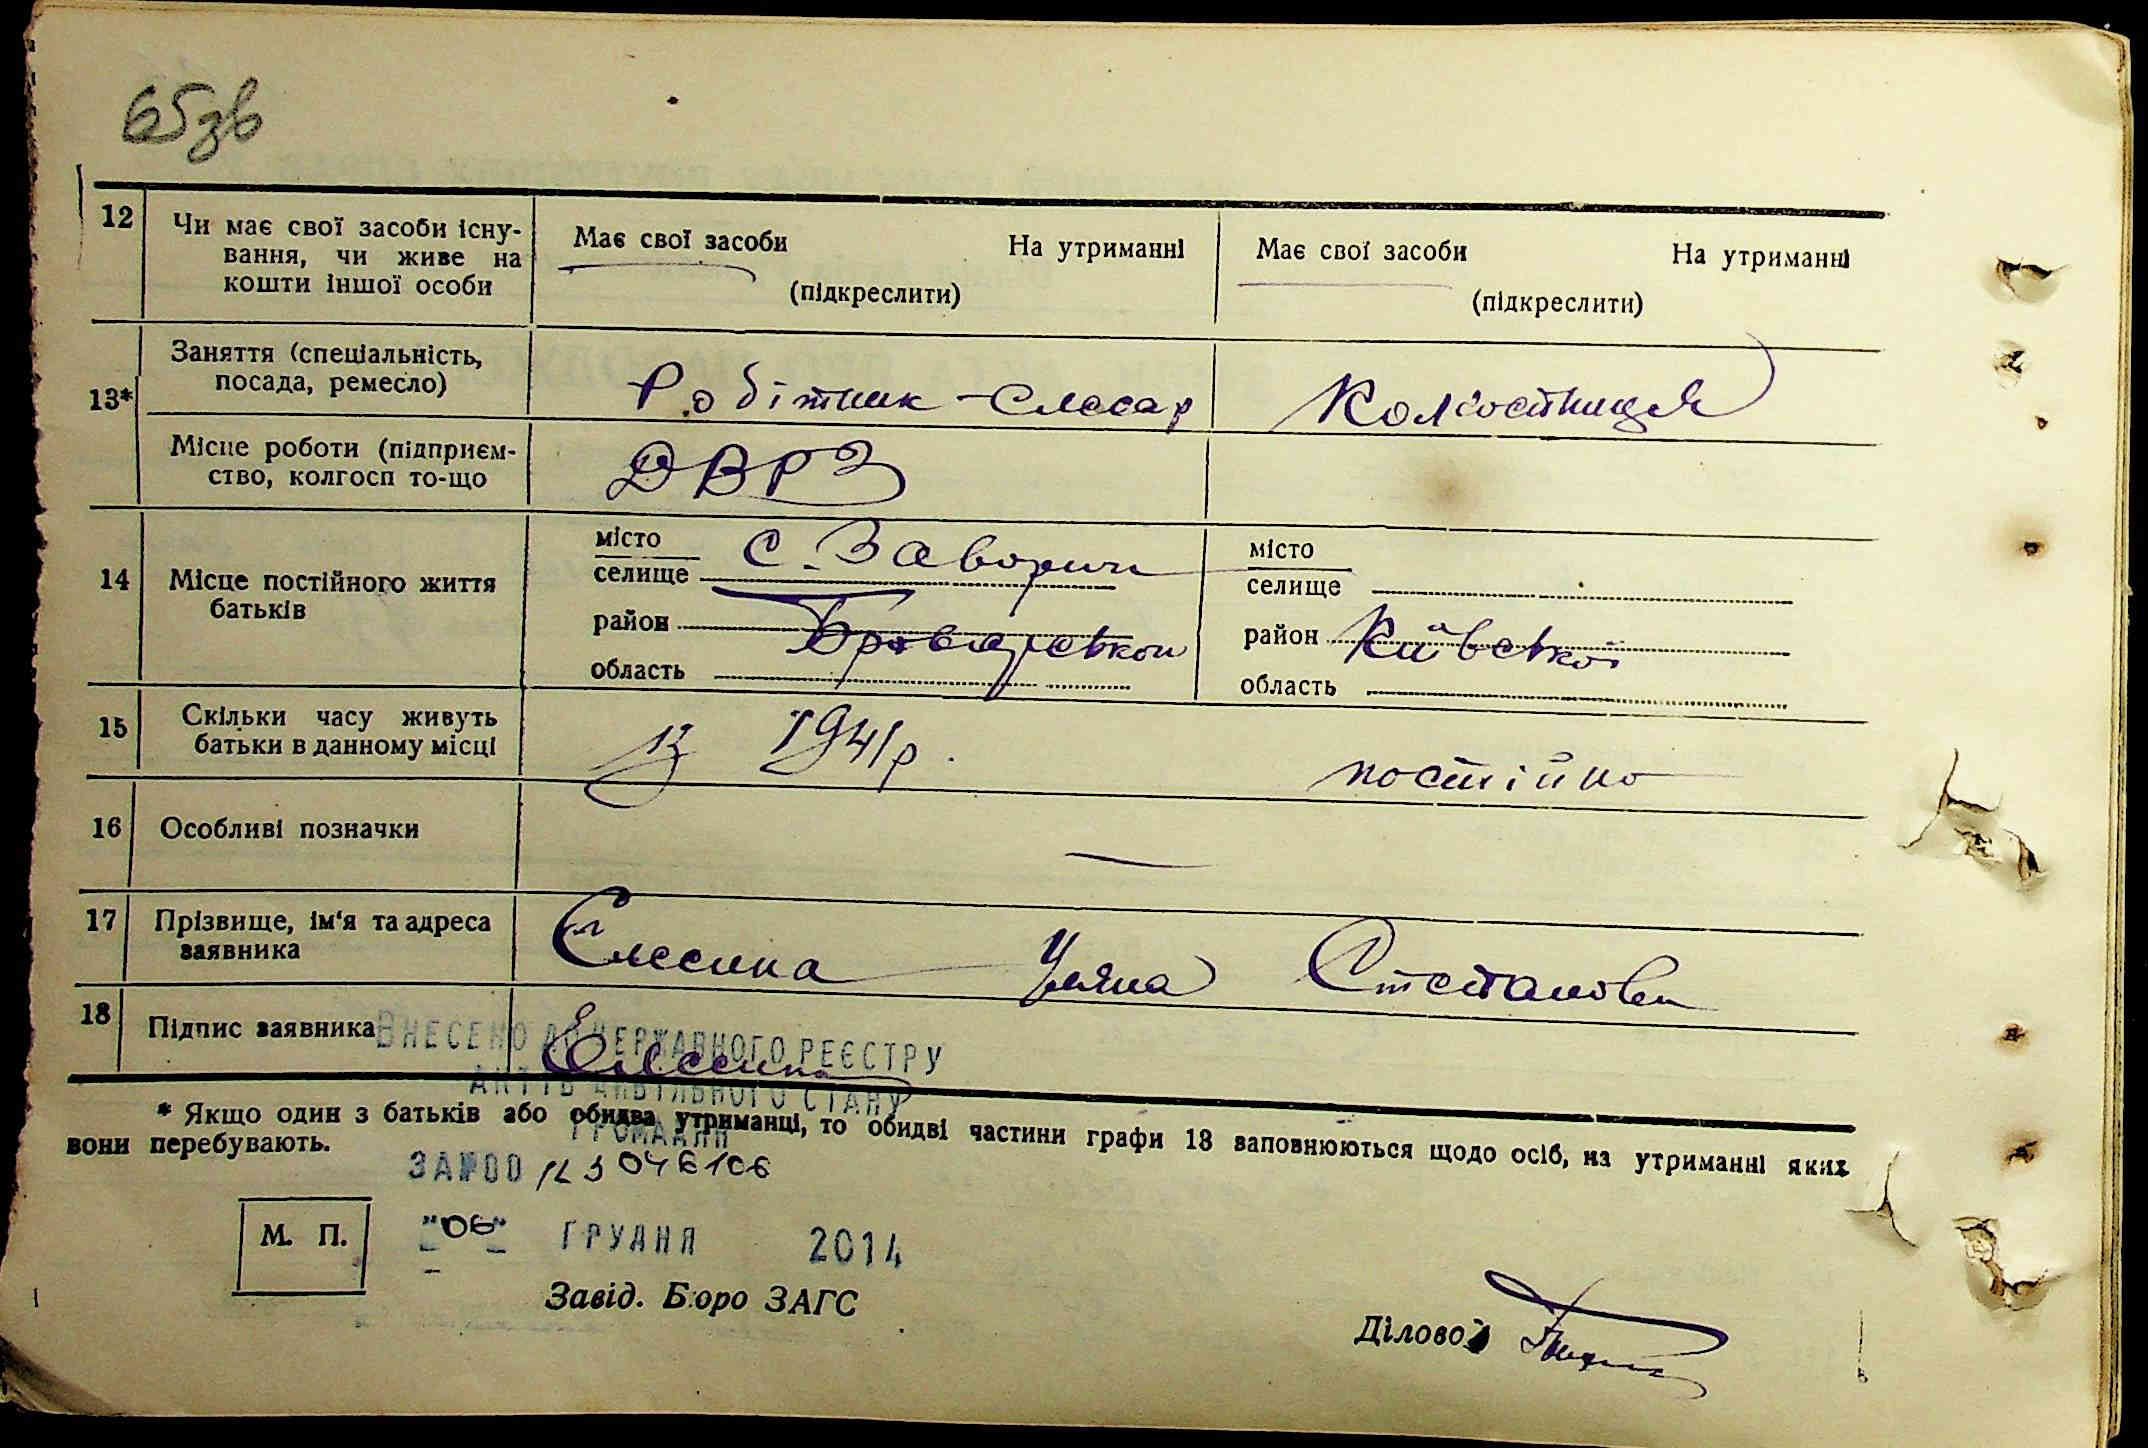 65зв
12 Чи має свої засоби існу-
вання, чи живе на
кошти іншої особи
Має свої засоби На утриманні
(підкреслити)
Має свої засоби На утриманні
(підкреслити)
13*
Заняття (спеціальність,
посада, ремесло)
Робітник - слесар
Колгостниця
Місце роботи (підприєм-
ство, колгосп то-що
ДВРЗ
14 Місце постійного життя
батьків
місто
селище с. Заворичі
район Броварської
область
місто
селище
район Київської
область
15 Скільки часу живуть
батьки в данному місці
із 1941 р.
постійно
16 Особливі позначки —
17 Прізвище, ім'я та адреса
заявника
Єлесина Уляна Степанов
18 Підпис заявника
Єлесина
ВНЕСЕНО ДО ДЕРЖАВНОГО РЕЄСТРУ
АКТІВ ЦИВІЛЬНОГО СТАНУ
ГРОМАДЯН
* Якщо один з батьків або обидва утриманці, то обидві частини графи 13 заповнюються щодо осіб, на утриманні яких
вони перебувають.
ЗА №00 123046106
М. П.
"06" ГРУДНЯ 2014
Завід. Бюро ЗАГС
Діловод